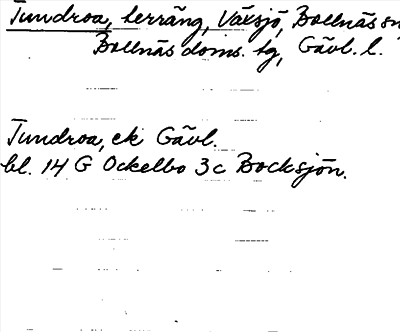 Tundroa, terräng, Växsjö, Bollnäs sn
Bollnäs doms. tg, Gävl. l.
Tundroa, ek Gävl.
bl. 14 G Ockelbo 3c Bocksjön.